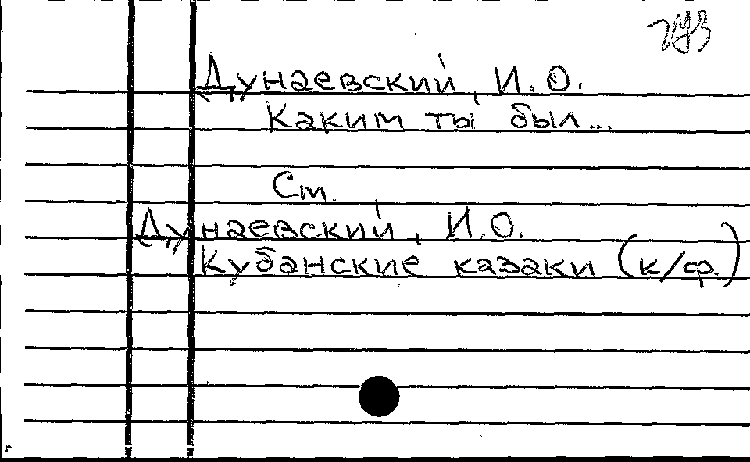 Дунаевский, И.О.
Каким ты был...
См.
Дунаевский, И.О.
Кубанские казаки (к/ф.)